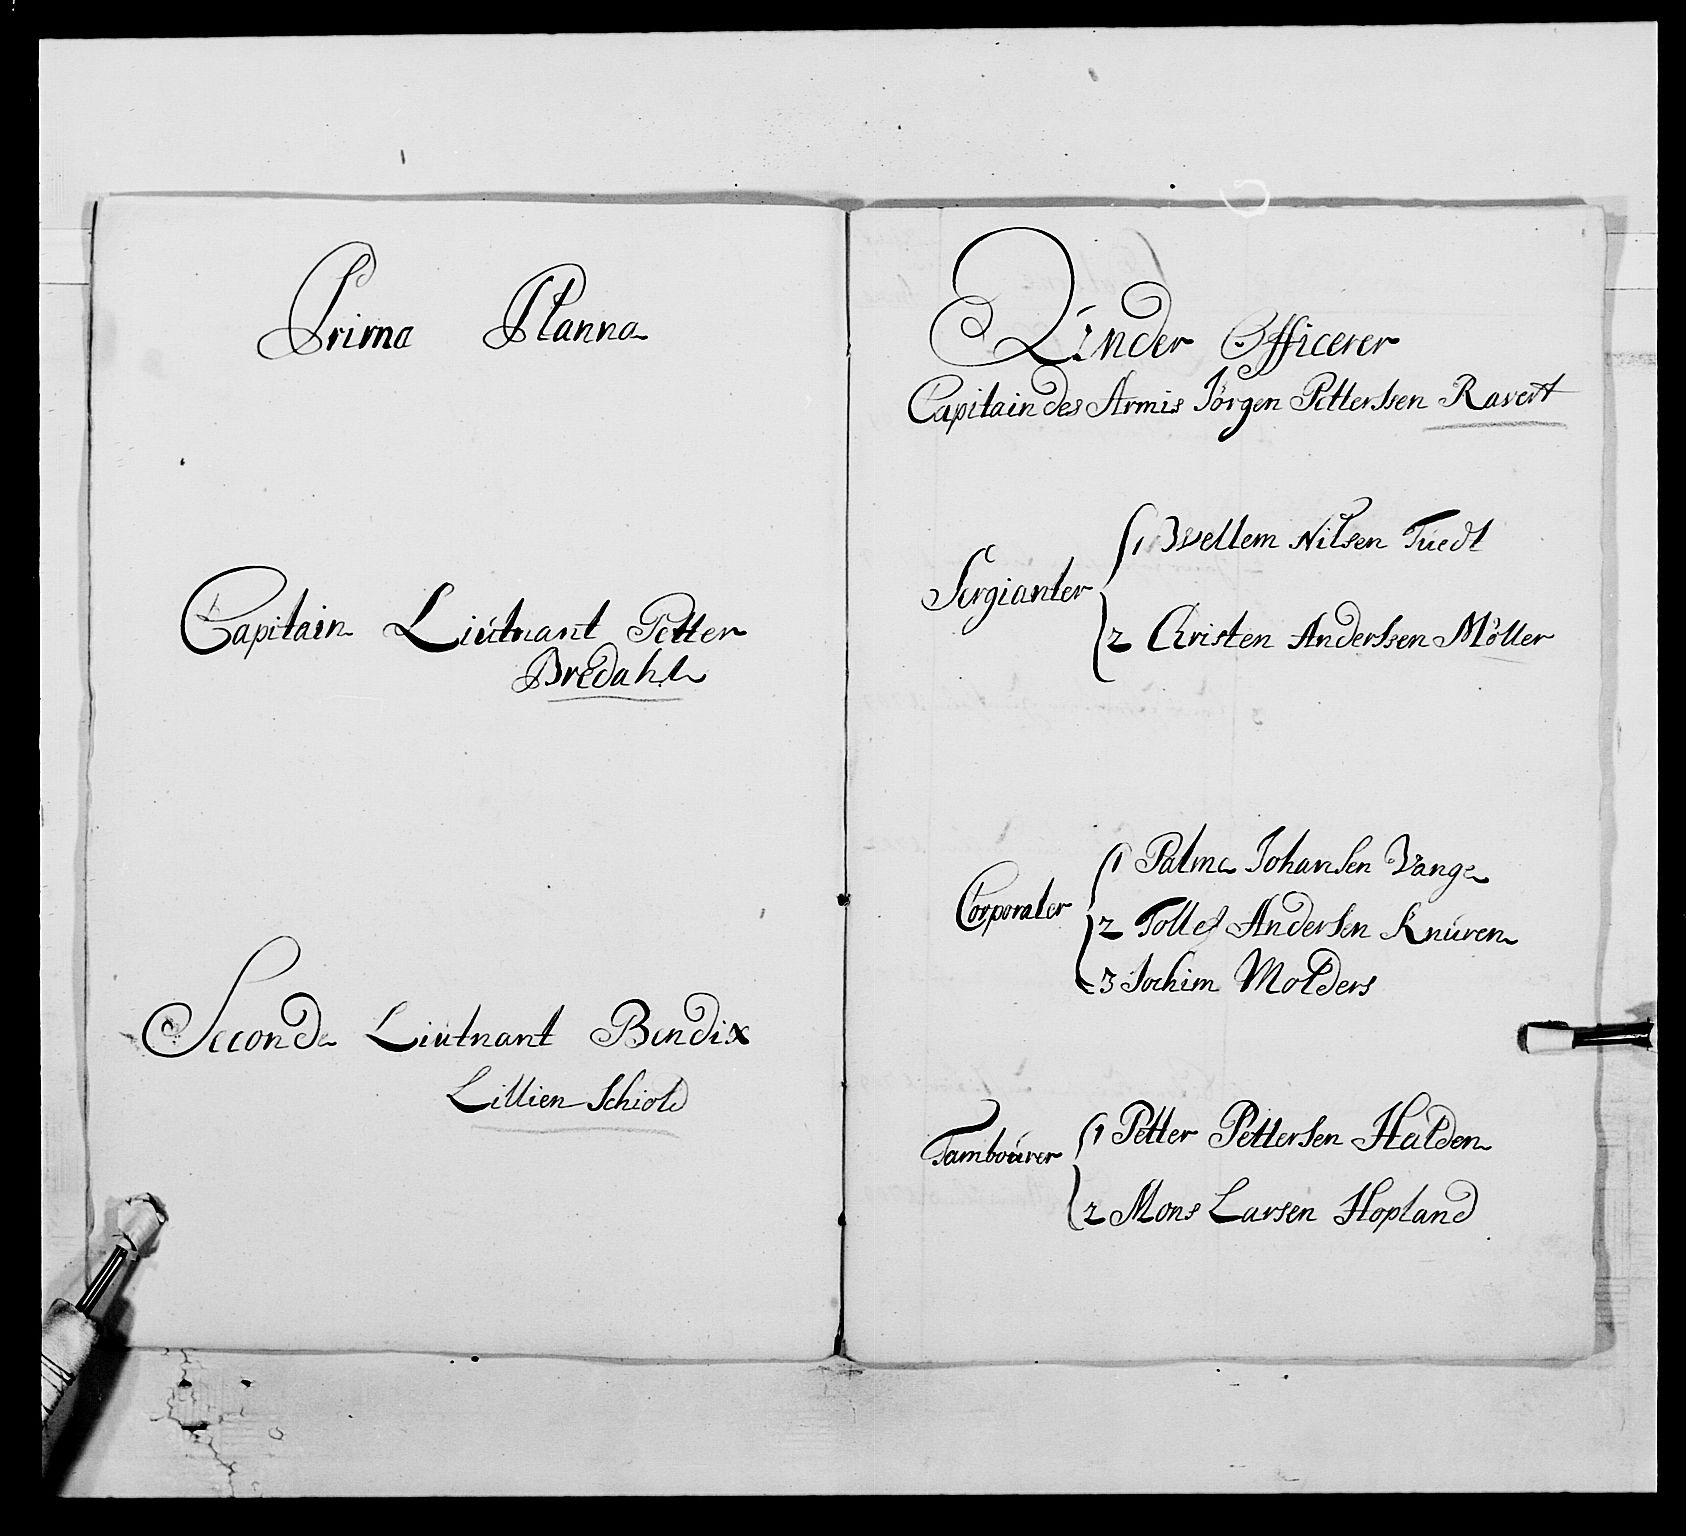 Prima Planna
Capitain Lieutnant Petter
Bredahl
Second Lieutnant Bendix
Lillien Schiold
Under Officerer
Capitain des Armis Jörgen Petterssen Ravert
Sergianter
1 Wellem Nilsen Tuedt
2 Christen Anderssen Möller
Corporaler
1 Palma Johansen Vange
2 Tollef Andersen Knuren
3 Jochim Molders
Tambourer
1 Petter Pettersen Halden
2 Mons Larsen Hopland